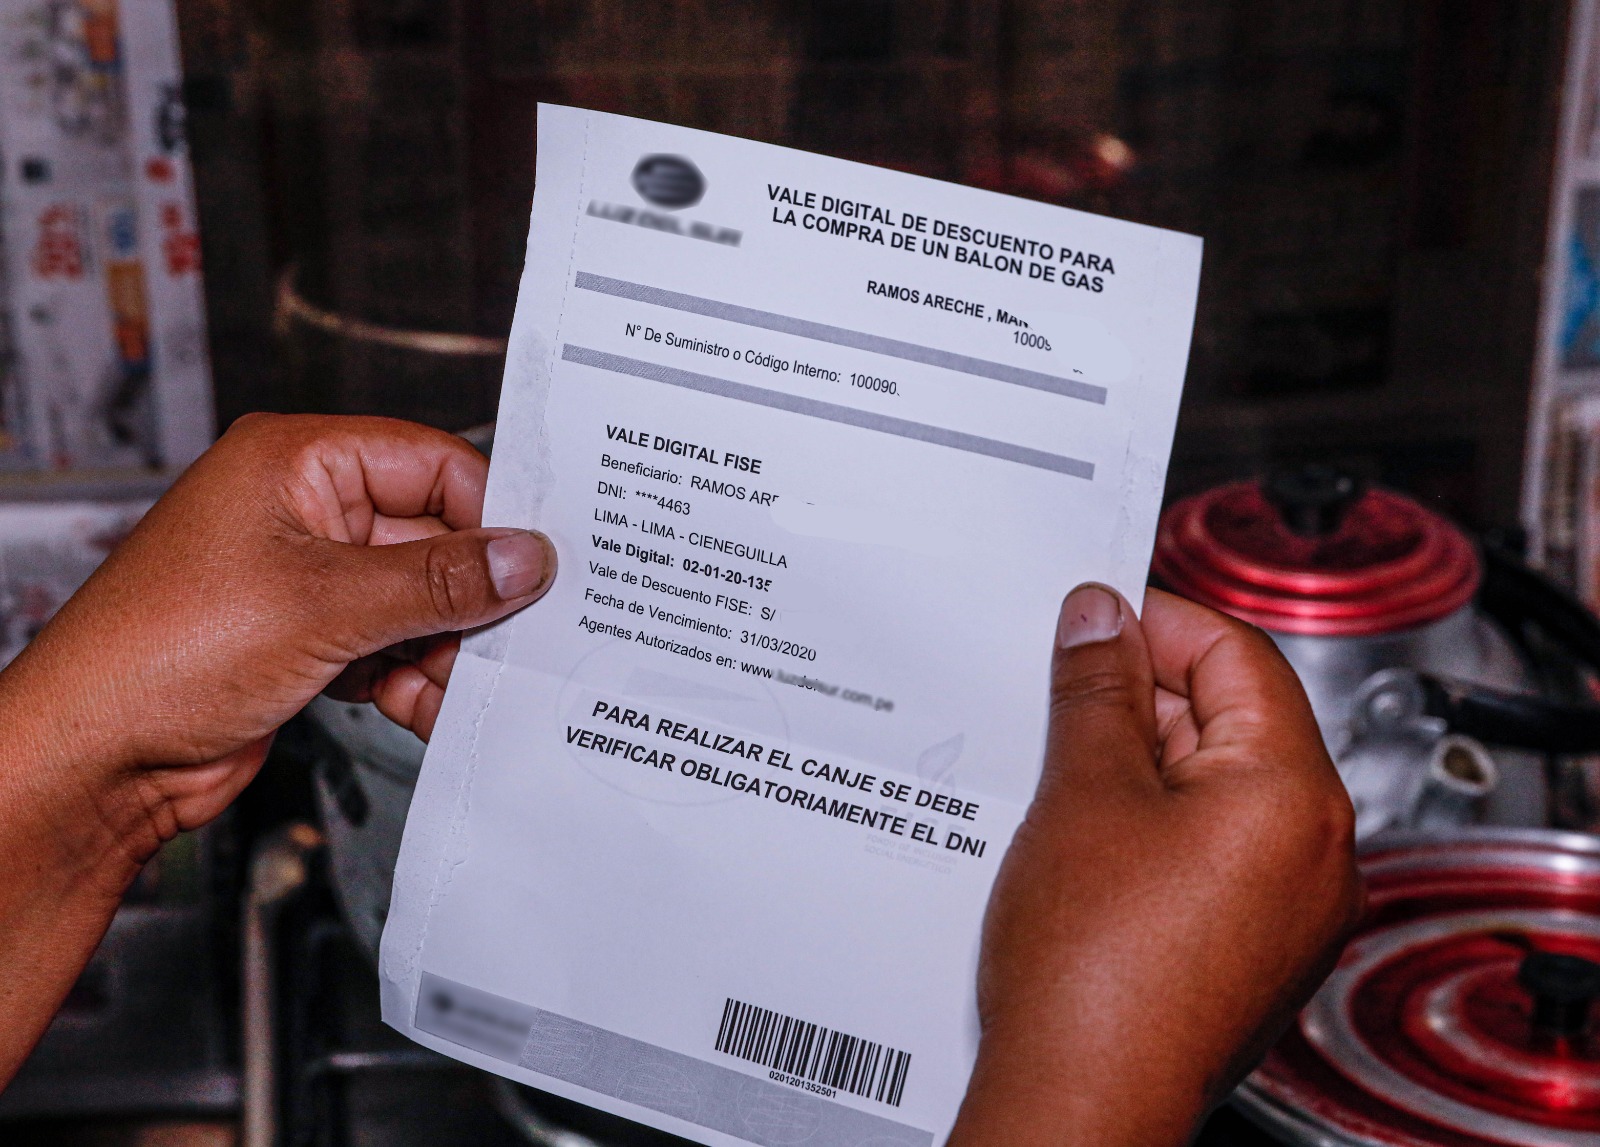 LUZ DEL SUR
VALE DIGITAL DE DESCUENTO PARA
LA COMPRA DE UN BALON DE GAS
RAMOS ARECHE , MAR
10009
N° De Suministro o Código Interno: 100090
VALE DIGITAL FISE
Beneficiario: RAMOS ARE
DNI: ****4463
LIMA - LIMA - CIENEGUILLA
Vale Digital: 02-01-20-135
Vale de Descuento FISE: S/
Fecha de Vencimiento: 31/03/2020
Agentes Autorizados en: www.luzdelsur.com.pe
PARA REALIZAR EL CANJE SE DEBE
VERIFICAR OBLIGATORIAMENTE EL DNI
FONDO DE INCLUSIÓN
SOCIAL ENERGÉTICO
0201201352501